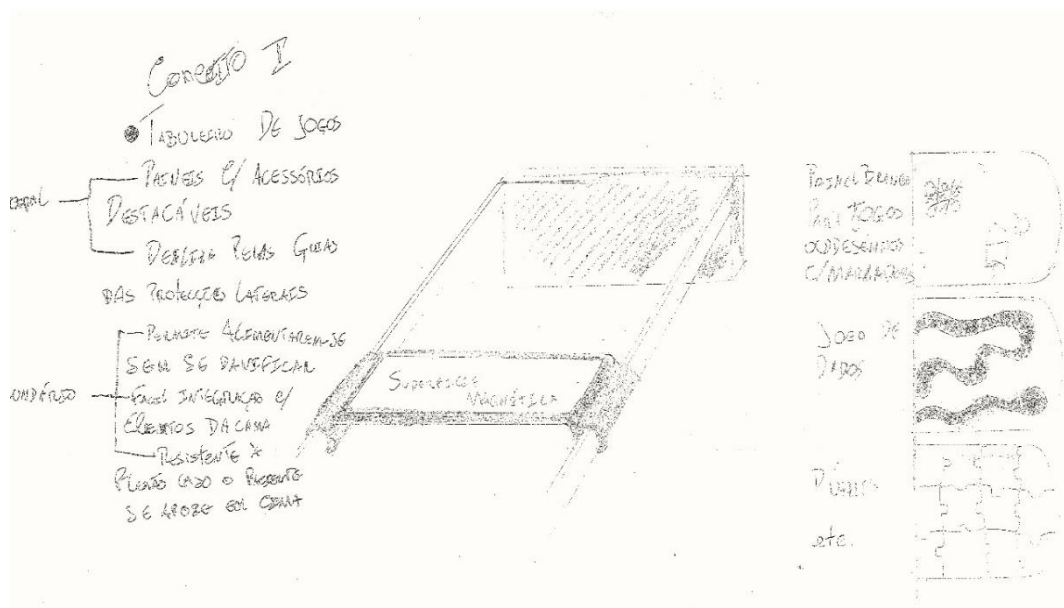 Conceito I
• Tabuleiro De Jogos
Paineis c/ Acessórios
Destacáveis
Desliza Pelas Guias
das Protecções Laterais
Permite Alimentarem-se
sem se danificar
Fácil Integração c/
Elementos da cama
Resistente à
caso o
se apoie em cima
Superfície
Magnética
Painel Branco
Para Jogos
ou Desenhos
c/ Marcadores
Jogo de
Dados
etc.